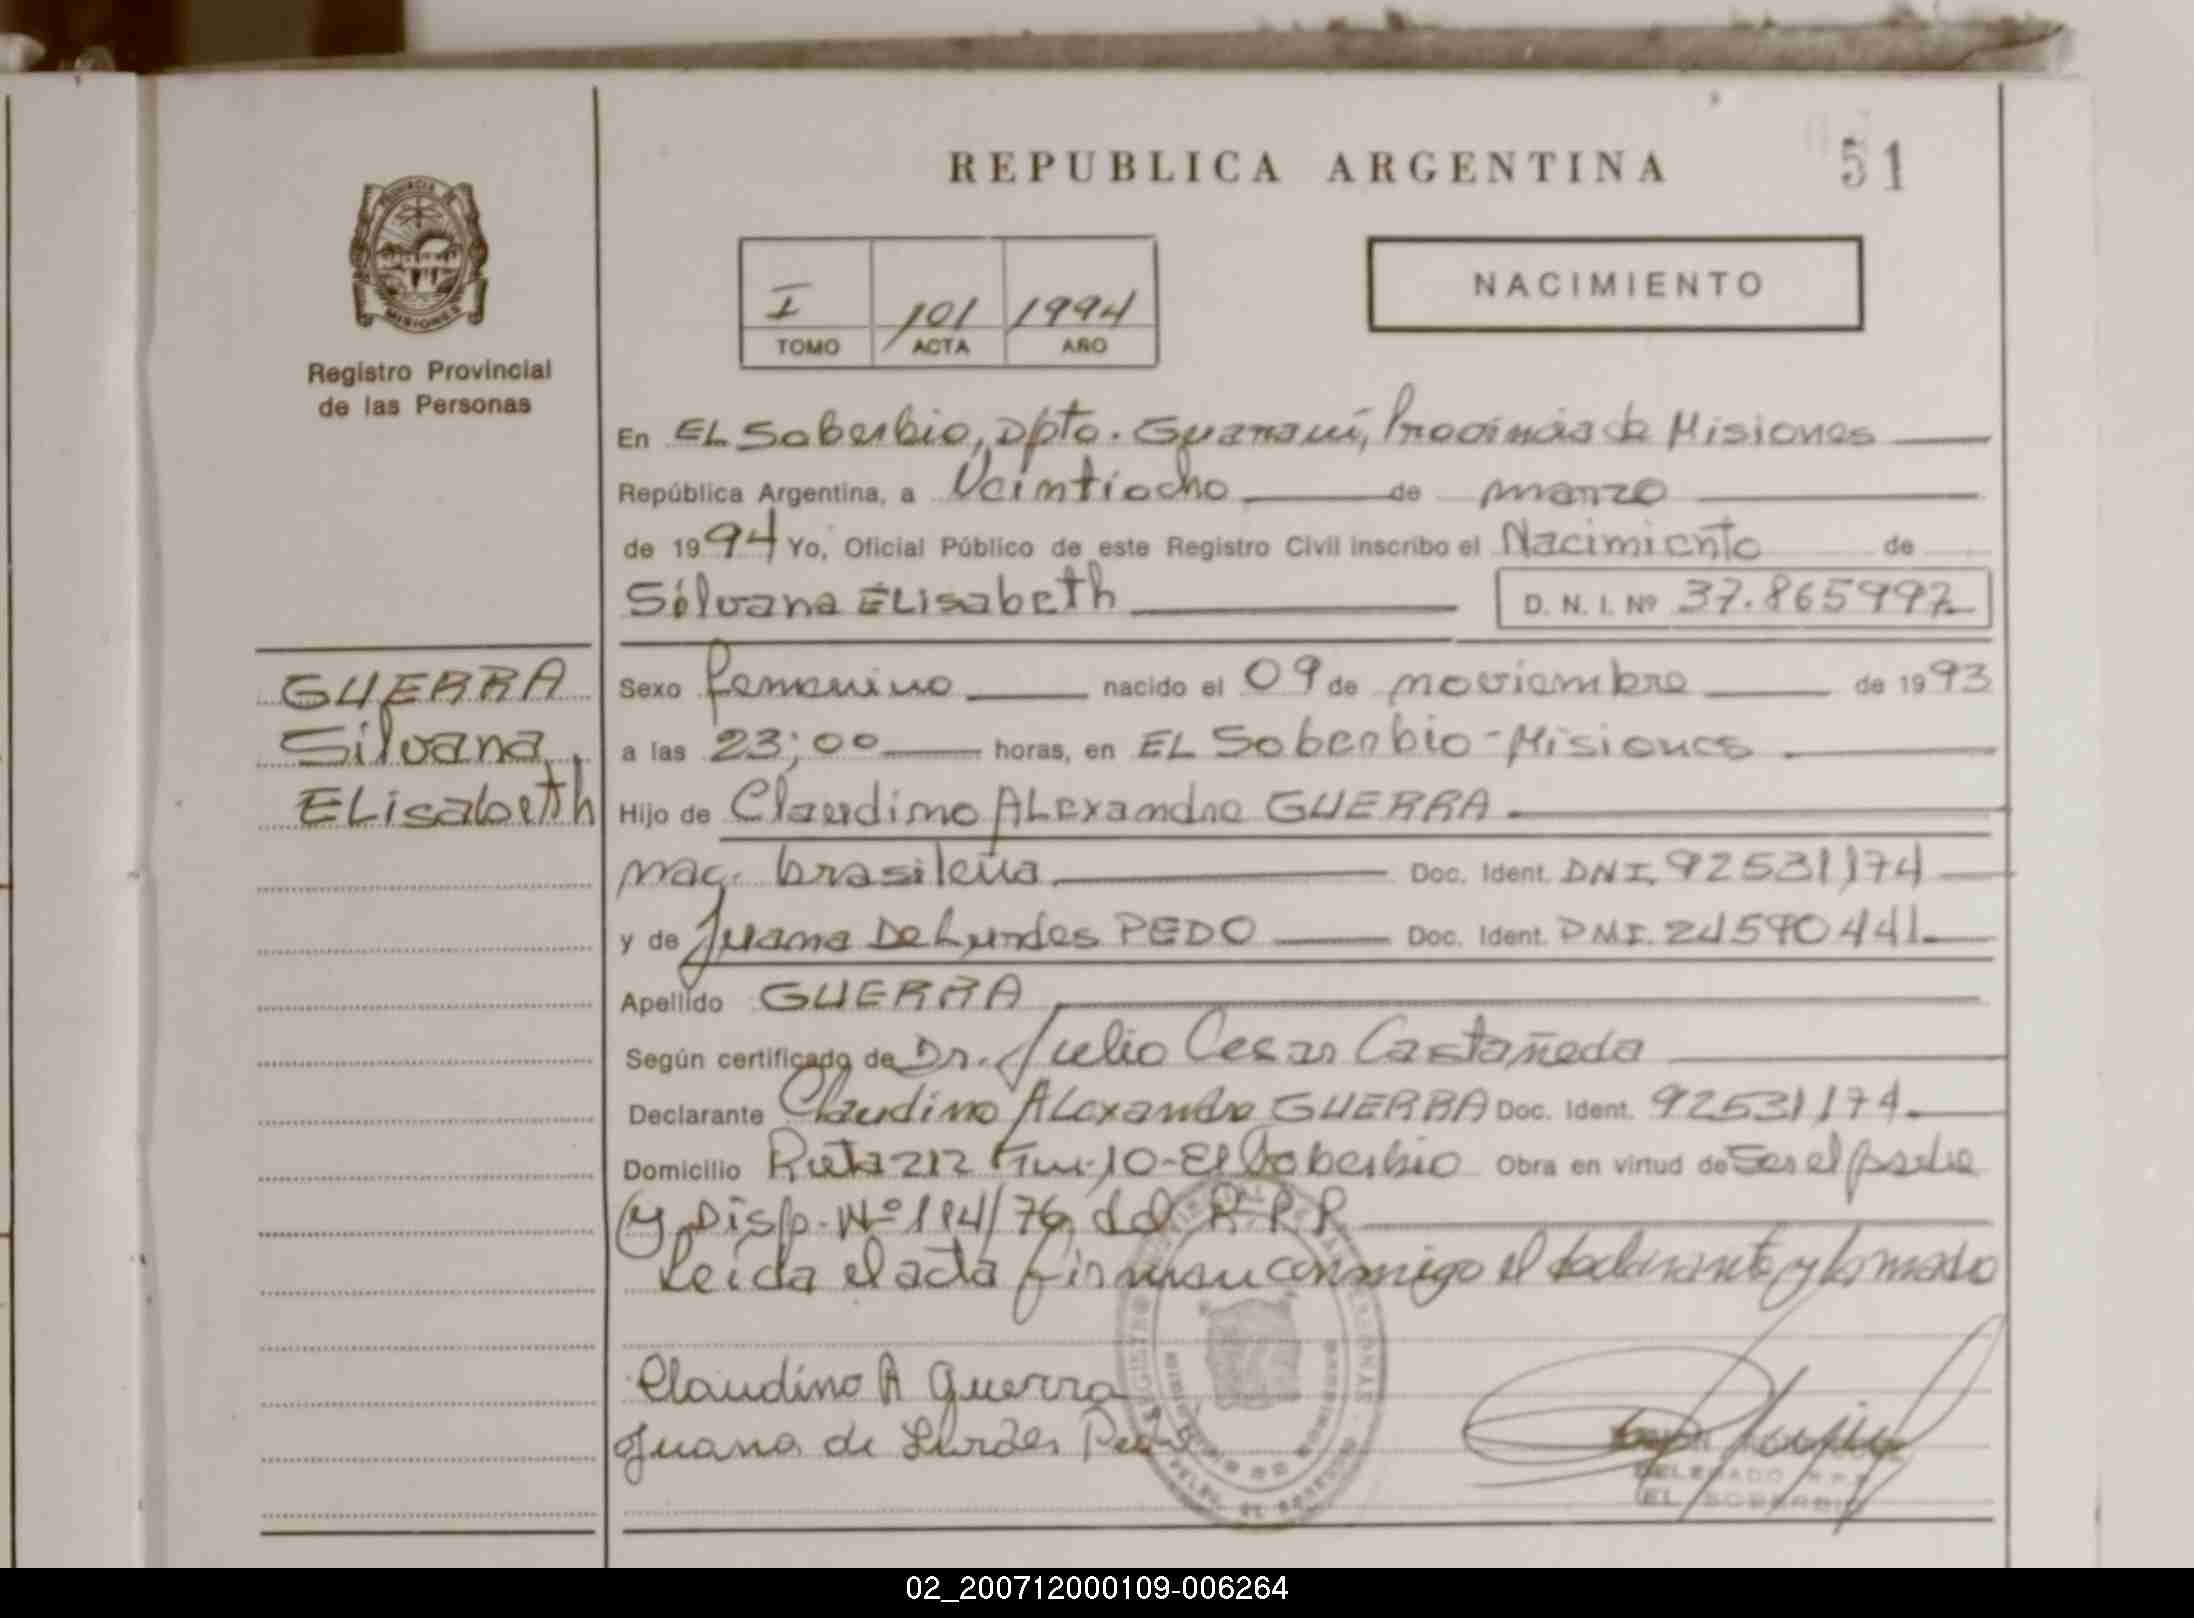 REPUBLICA ARGENTINA
51
PROVINCIA DE
MISIONES
Registro Provincial
de las Personas
I 101 1994
TOMO ACTA AÑO
NACIMIENTO
En EL Soberbio, Dpto. Guaraní, Provincia de Misiones
República Argentina, a Veintiocho de marzo
de 1994 Yo, Oficial Público de este Registro Civil inscribo el Nacimiento de
Silvana ELisabeth D. N. I. Nº 37.865997
GUERRA
Silvana
ELisabeth
Sexo femenino nacido el 09 de noviembre de 1993
a las 23;00 horas, en EL Soberbio - Misiones
Hijo de Claudino ALexandre GUERRA
nac. brasileña Doc. Ident. DNI. 92531174
y de Juana De Lurdes PEDO Doc. Ident. DNI. 24590441
Apellido GUERRA
Según certificado de Dr. Julio Cesar Castañeda
Declarante Claudino ALexandre GUERRA Doc. Ident. 92531174.
Domicilio Ruta 212 Km. 10 - El Soberbio Obra en virtud de Ser el padre
y Disp. Nº 114/76 del R P P
Leída el acta firman conmigo el declarante y la madre
Claudino A Guerra
Juana de Lurdes
DELEGADO R.P.P.
EL SOBERBIO
02_200712000109-006264